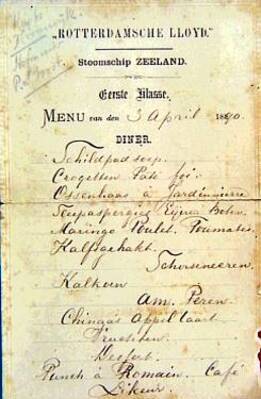 „ROTTERDAMSCHE LLOYD."
Stoomschip ZEELAND.
Eerste Klasse.
MENU van den 3 April 1890.
DINER.
Schildpad soep.
Croquetten Paté foi.
Ossenhaas à Jardinnierre
Maringo Poulet. Toumaties.
Kalfsgehakt.
Schorseneeren.
Kalkoen
Am. Peren.
Chinaas Appil taart
Vruchten
Dessert.
Punch à Romain. Café
Likeur.